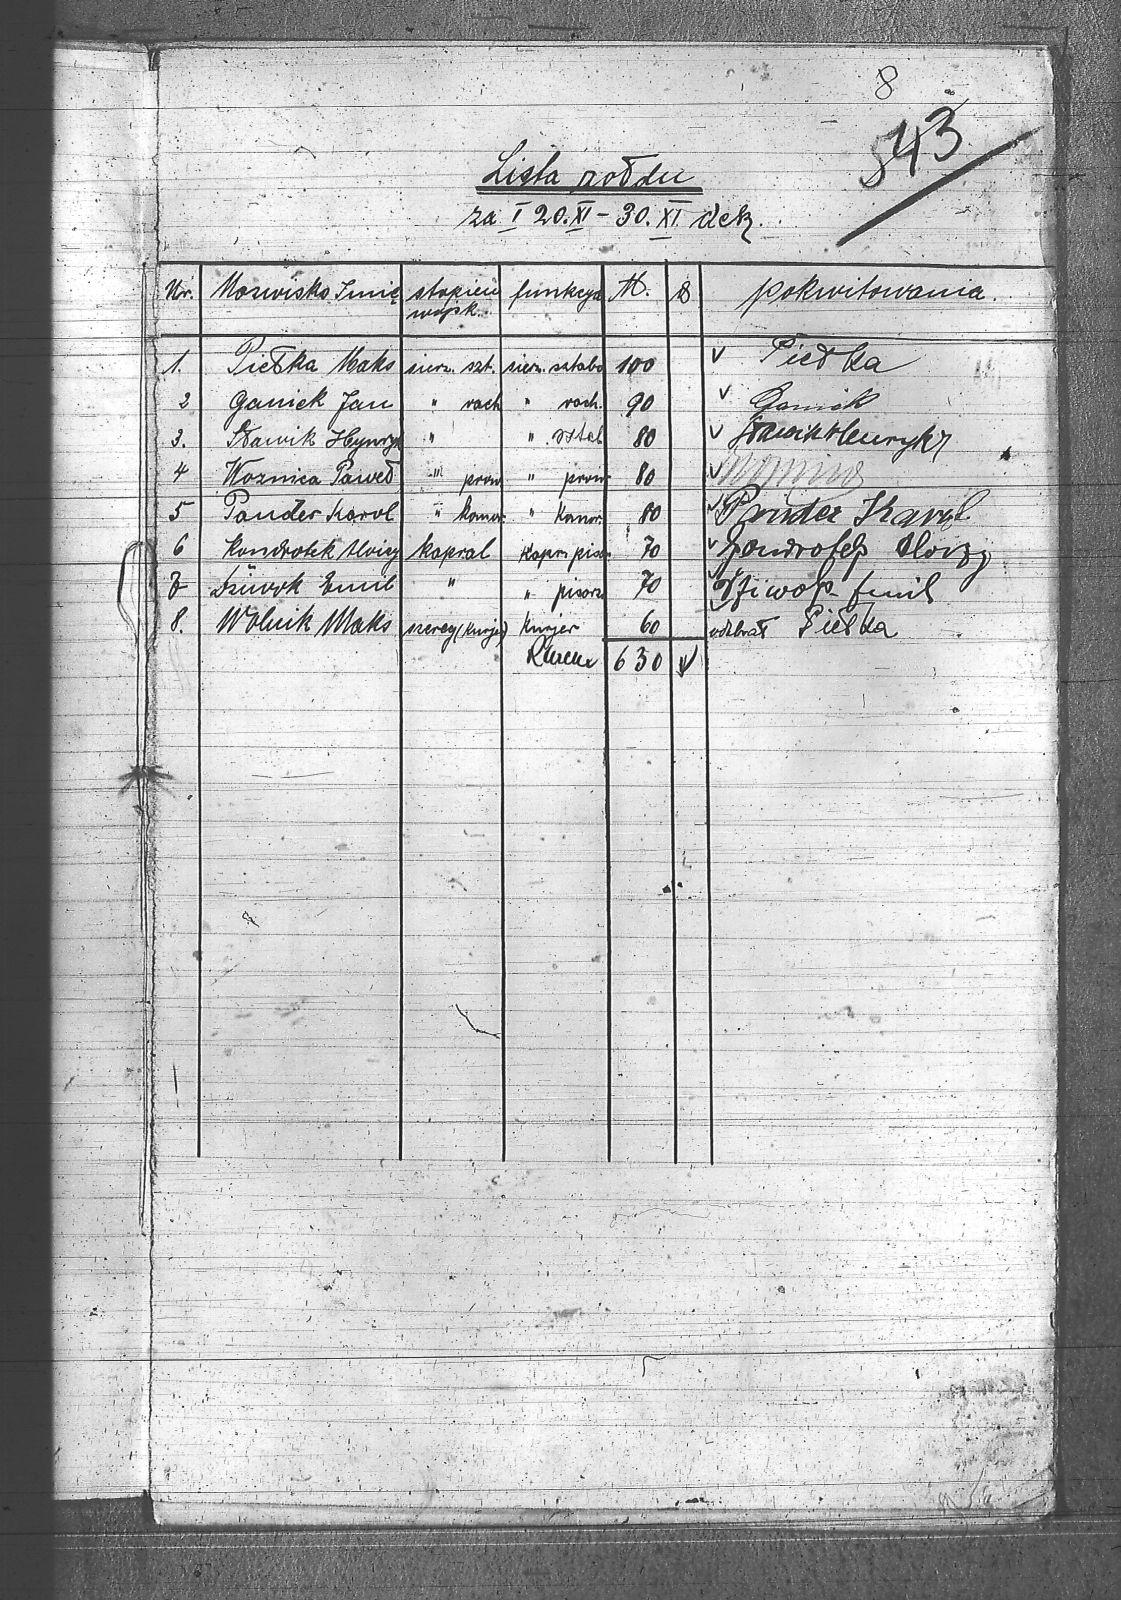 8
543
Lista żołdu
za I 20.XI – 30.XI dek.
Nr. Nazwisko Imię stopień wojsk. funkcya M. pokwitowania.
1. Piełka Maks sierz. szt. sierz. sztabo 100 v Piełka
2 Ganiek Jan " rach " rach. 90 v Ganiek
3. Sławik Hynryk " " 80 v Sławik Henryk
4 Woznica Paweł " prow " prow 80 v
5 Pander Karol " kanor " kanor. 80 v Pander Karol
6 Kondrotek Aloizy kapral kapr. pisar 70 v Kondrotek Aloizy
7 Emil " " pisarz 70 v Emil
8. Wolnik Maks szereg (kurjer) kurjer 60 odebrał Piełka
Razem 630